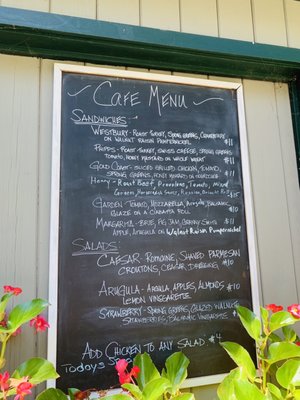 Cafe Menu
Sandwiches:
Westbury - Roast Turkey, Spring Greens,
on Walnut Raisin Pumpernickel $11
Phipps - Roast Turkey, Swiss Cheese, Spring Greens,
Tomato, Honey Mustard on Whole Wheat $11
Gold Coast - Sliced Grilled Chicken, Tomato,
Spring Greens, Honey Mustard on $11
Henry - Roast Beef, Provolone, Tomato, Mixed
Greens, Horseradish Sauce, Raisin, Brioche Roll $15
Garden - Tomato, Mozzarella, Balsamic
Glaze on a Ciabatta Roll $10
Margarita - Brie, Fig Jam, Granny Smith $11
Apple, Arugula on Walnut Raisin Pumpernickel
Salads:
Caesar - Romaine, Shaved Parmesan
Croutons, Caesar Dressing $10
Arugula - Arugula, Apples, Almonds $10
Lemon Vinegarette
Strawberry - Spring Greens, Glazed Walnuts
Strawberries, Balsamic Vinegarette $
Add Chicken to Any Salad $4
Todays